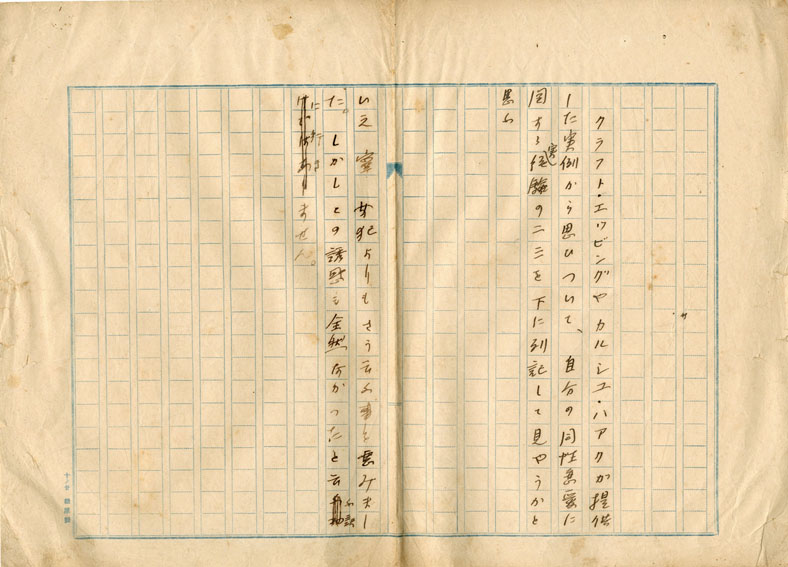 クラフト・エヴィングやカルシュ・ハアクが提供
した実例から思ひついて、自分の同性恋愛に
関する実験の二三を下に列記して見やうかと
思ふ
いえ寧ろ よりもさう云ふ事を
た。しかしその誘惑も全然なかつたと云ふ訳
に行き
ません。